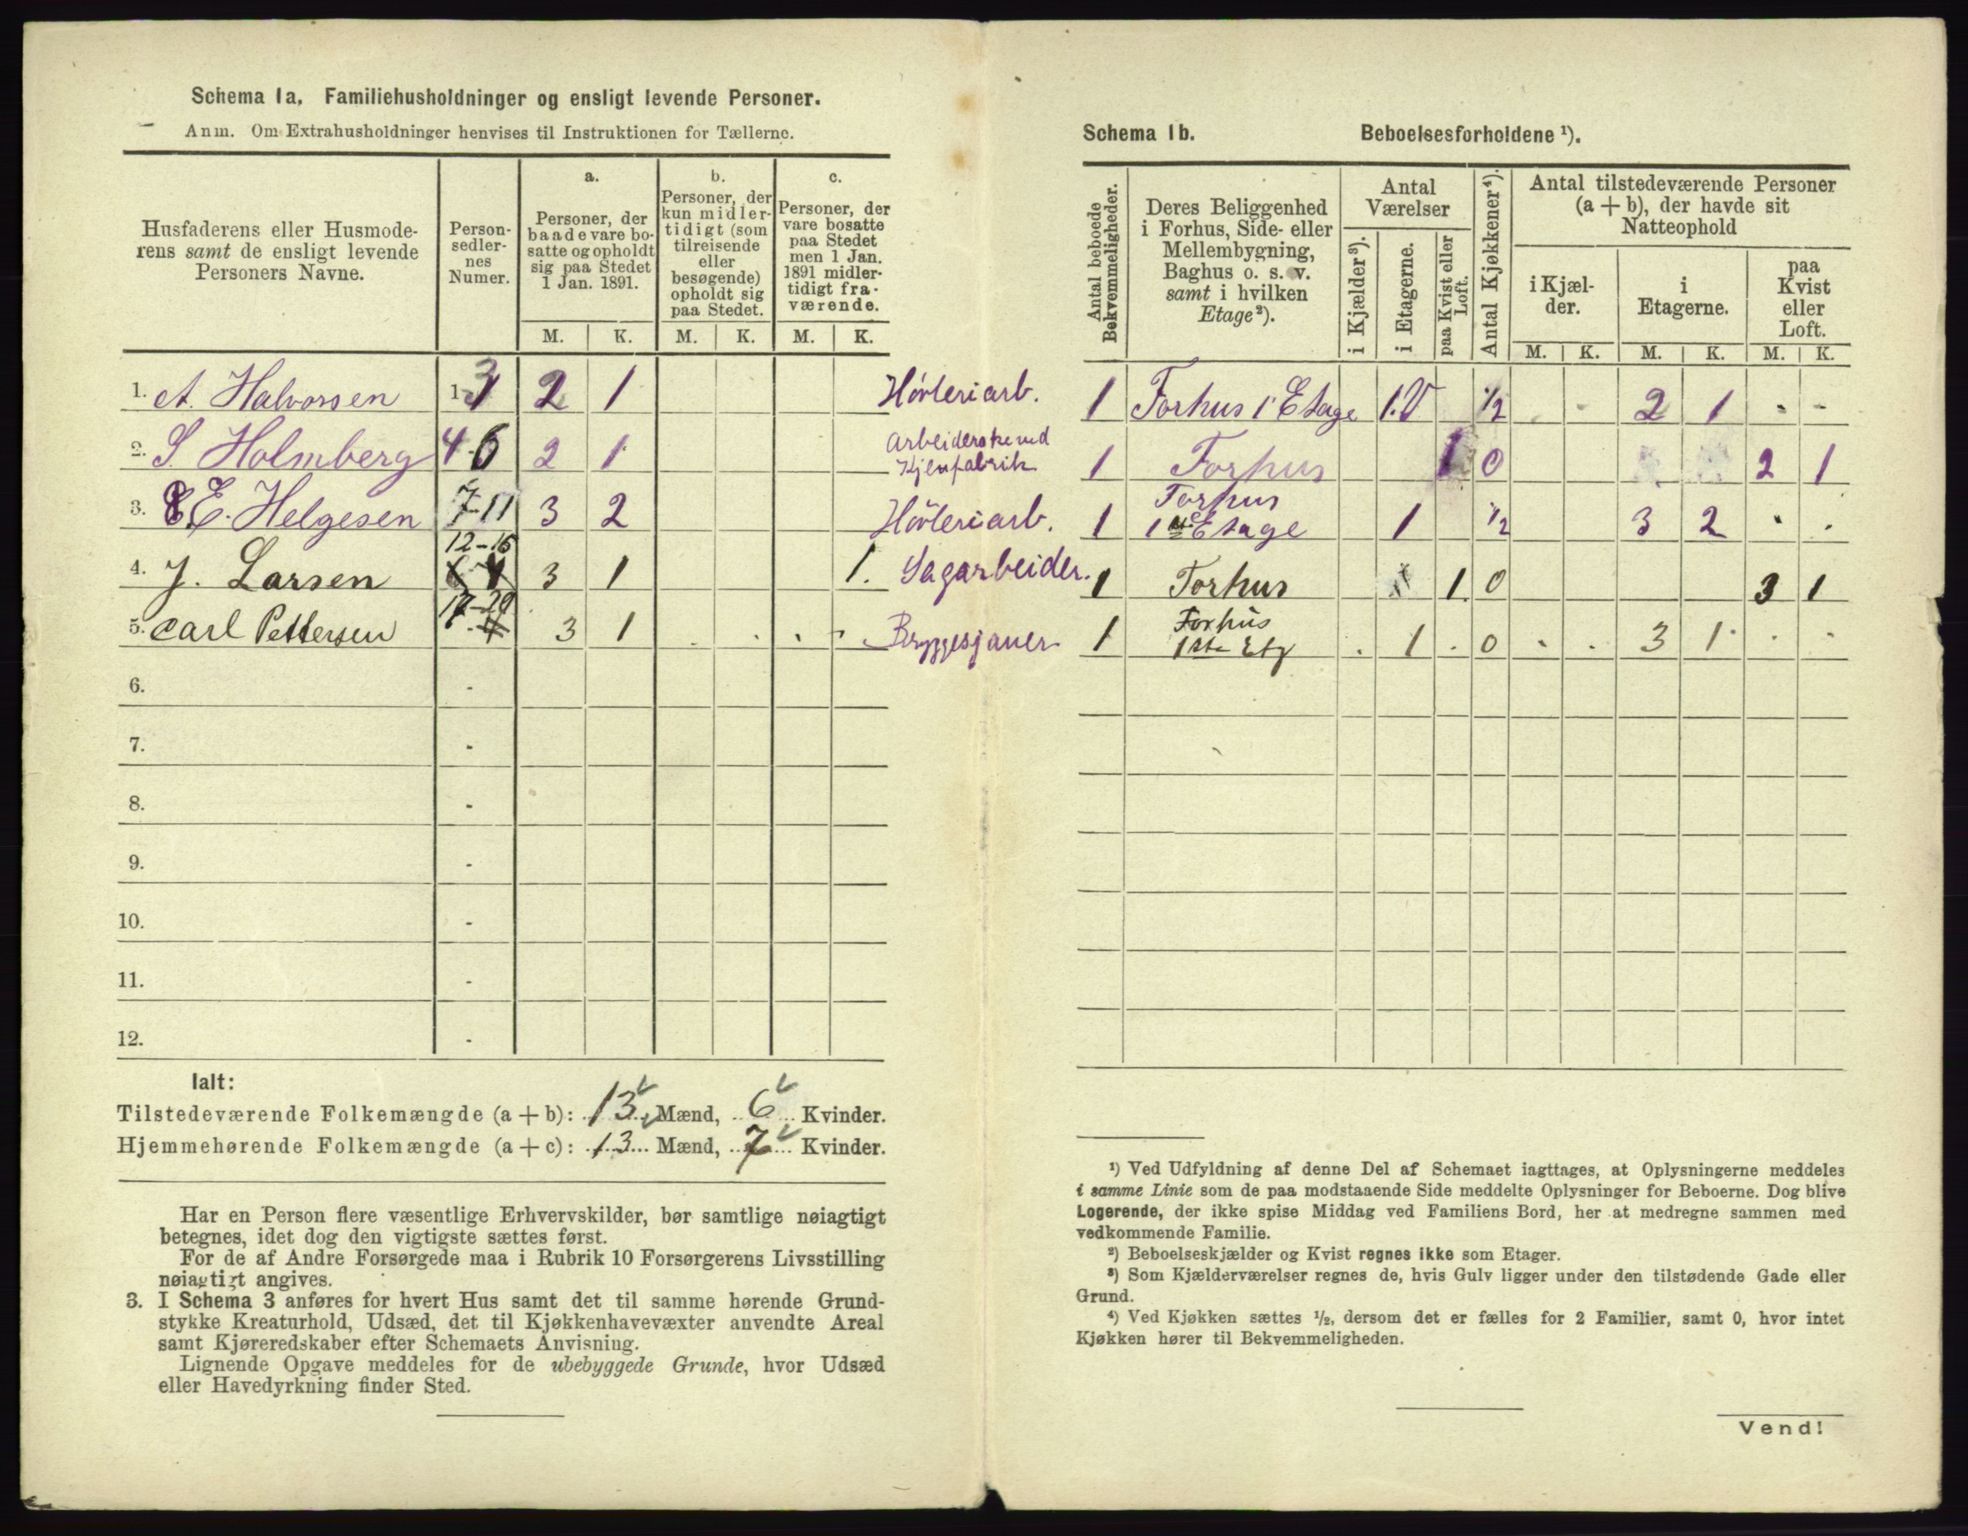 Schema 1a. Familiehusholdninger og ensligt levende Personer.
Anm. Om Extrahusholdninger henvises til Instruktionen for Tællerne.
Husfaderens eller Husmode-
rens samt de ensligt levende
Personers Navne.
Person-
sedler-
nes
Numer.
a.
Personer, der
baade vare bo-
satte og opholdt
sig paa Stedet
1 Jan. 1891.
b.
Personer, der
kun midler-
tidigt (som
tilreisende
eller
besøgende)
opholdt sig
paa Stedet.
c.
Personer, der
vare bosatte
paa Stedet
men 1 Jan.
1891 midler-
tidigt fra-
værende.
M. K. M. K. M. K.
1. A. Halvorsen 1-3 2 1 Høvleriarb.
2. S. Holmberg 4-6 2 1 Arbeiderske ved
Kjexfabrik
3. E. Helgesen 7-11 3 2 Høvleriarb.
4. J. Larsen 12-16 3 1 1. Sagarbeider.
5. Carl Pettersen 17-20 3 1 Bryggesjauer
6. -
7. -
8. -
9. -
10. -
11. -
12. -
Ialt:
Tilstedeværende Folkemængde (a + b): 13 Mænd, 6 Kvinder.
Hjemmehørende Folkemængde (a + c): 13 Mænd, 7 Kvinder.
Har en Person flere væsentlige Erhvervskilder, bør samtlige nøiagtigt
betegnes, idet dog den vigtigste sættes først.
For de af Andre Forsørgede maa i Rubrik 10 Forsørgerens Livsstilling
nøiagtigt angives.
3. I Schema 3 anføres for hvert Hus samt det til samme hørende Grund-
stykke Kreaturhold, Udsæd, det til Kjøkkenhavevæxter anvendte Areal
samt Kjøreredskaber efter Schemaets Anvisning.
Lignende Opgave meddeles for de ubebyggede Grunde, hvor Udsæd
eller Havedyrkning finder Sted.
Schema 1b. Beboelsesforholdene ¹).
Antal beboede
Bekvemmeligheder.
Deres Beliggenhed
i Forhus, Side- eller
Mellembygning,
Baghus o. s. v.
samt i hvilken
Etage²).
Antal
Værelser
i Kjælder³).
i Etagerne.
paa Kvist eller
Loft.
Antal Kjøkkener⁴).
Antal tilstedeværende Personer
(a + b), der havde sit
Natteophold
i Kjæl-
der.
i
Etagerne.
paa
Kvist
eller
Loft.
M. K. M. K. M. K.
1 Forhus 1 Etage 1. 1/2 - 2 1 - -
1 Forhus 1 0 2 1
1 Forhus
1ste Etage 1 1/2 3 2 . .
1 Forhus 1. 0 3 1
1 Forhus
1ste Etg . 1 . 0 . . 3 1 . .
¹) Ved Udfyldning af denne Del af Schemaet iagttages, at Oplysningerne meddeles
i samme Linie som de paa modstaaende Side meddelte Oplysninger for Beboerne. Dog blive
Logerende, der ikke spise Middag ved Familiens Bord, her at medregne sammen med
vedkommende Familie.
²) Beboelseskjælder og Kvist regnes ikke som Etager.
³) Som Kjælderværelser regnes de, hvis Gulv ligger under den tilstødende Gade eller
Grund.
⁴) Ved Kjøkken sættes ½, dersom det er fælles for 2 Familier, samt 0, hvor intet
Kjøkken hører til Bekvemmeligheden.
Vend!